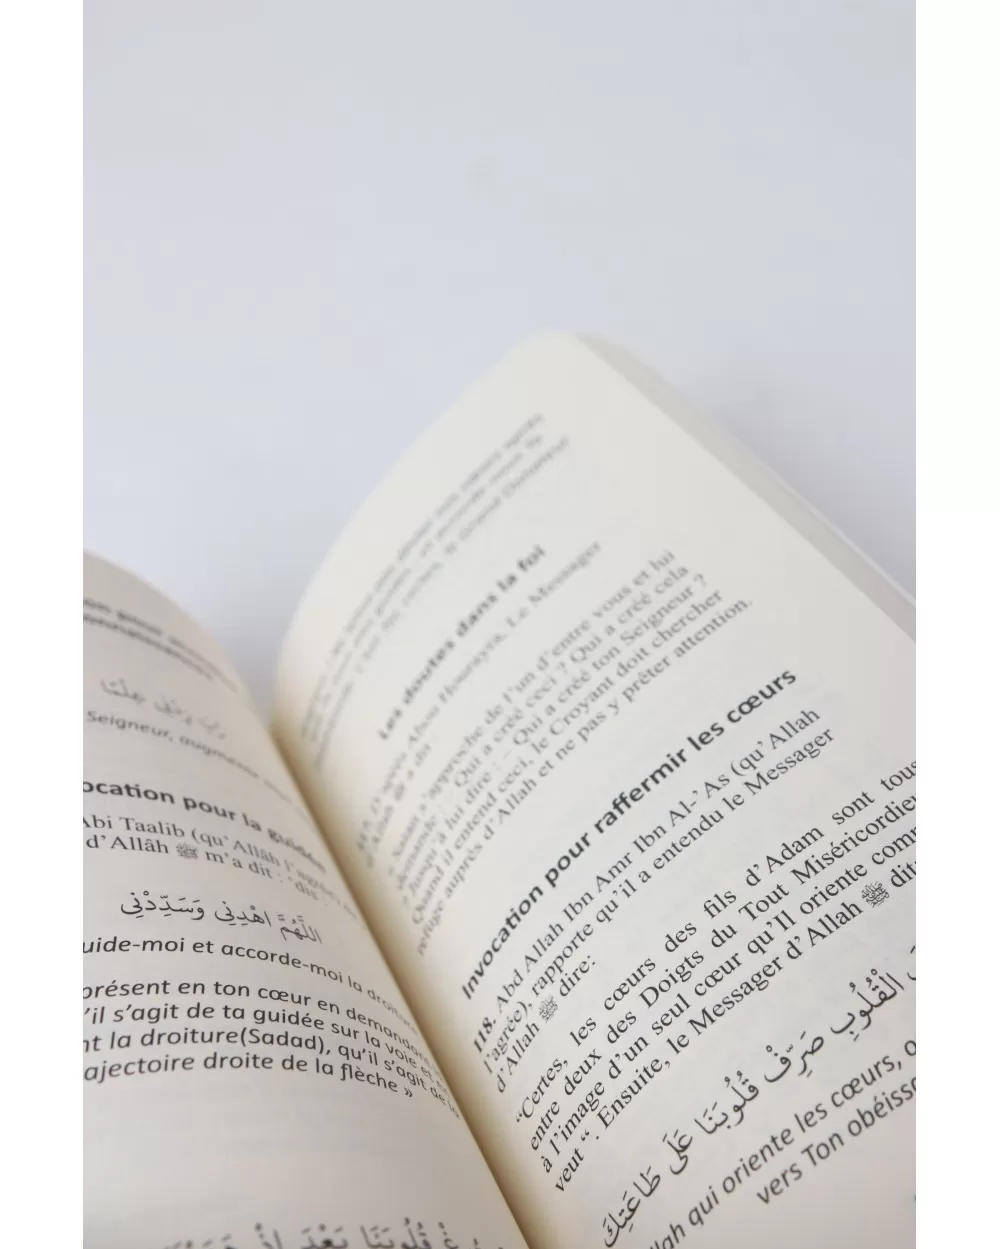 رب زدني علمًا
Seigneur, augmente
ocation pour la guidée
Abi Taalib (qu'Allâh l'agrée)
d'Allâh ﷺ m'a dit : "dis :
اللَّهُمَّ اهْدِنِي وَسَدِّدْنِي
uide-moi et accorde-moi la droiture
présent en ton cœur en demandant
'il s'agit de ta guidée sur la voie et
nt la droiture(Sadad), qu'il s'agit de la
ajectoire droite de la flèche »
قُلُوبَنَا بَعْدَ إِذْ
Les doutes dans la foi
D'après Abou Hourayra, Le Messager
d'Allah ﷺ a dit :
" Satan s'approche de l'un d'entre vous et lui
demande : - Qui a créé ceci ? Qui a créé cela
? Jusqu'à lui dire : - Qui a créé ton Seigneur ?
Quand il entend ceci, le Croyant doit chercher
refuge auprès d'Allah et ne pas y prêter attention.
Invocation pour raffermir les cœurs
118. Abd Allah Ibn Amr Ibn Al-'As (qu'Allah
l'agrée), rapporte qu'il a entendu le Messager
d'Allah ﷺ dire:
"Certes, les cœurs des fils d'Adam sont tous
entre deux des Doigts du Tout Miséricordieu
à l'image d'un seul cœur qu'Il oriente comm
veut ". Ensuite, le Messager d'Allah ﷺ dit
الْقُلُوبِ صَرِّفْ قُلُوبَنَا عَلَى طَاعَتِكَ
llah qui oriente les cœurs, o
vers Ton obéissa